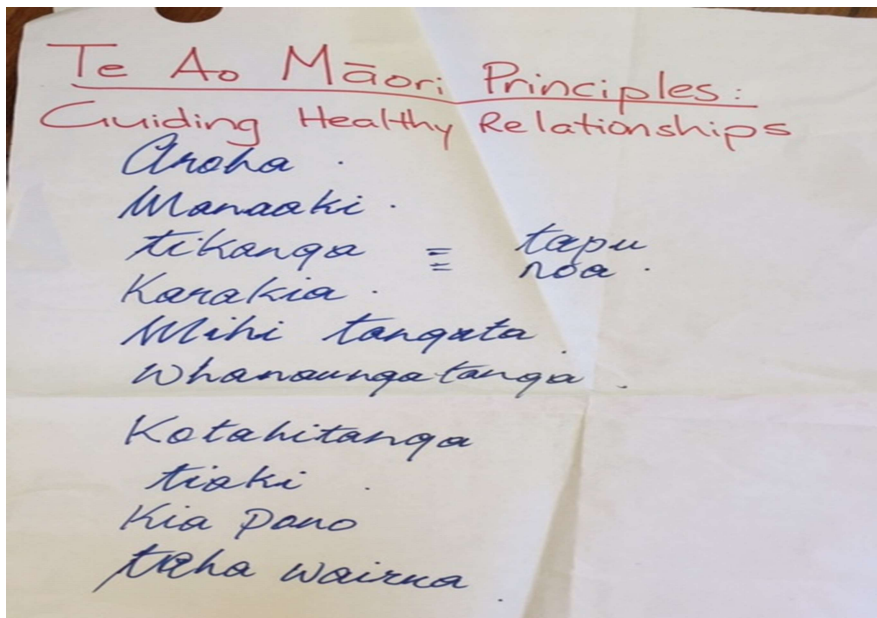 Te Ao Māori Principles:
Guiding Healthy Relationships
Aroha.
Manaaki.
tikanga = tapu
= noa.
Karakia.
Mihi tangata.
Whanaungatanga.
Kotahitanga
tiaki.
Kia pono
taha wairua.